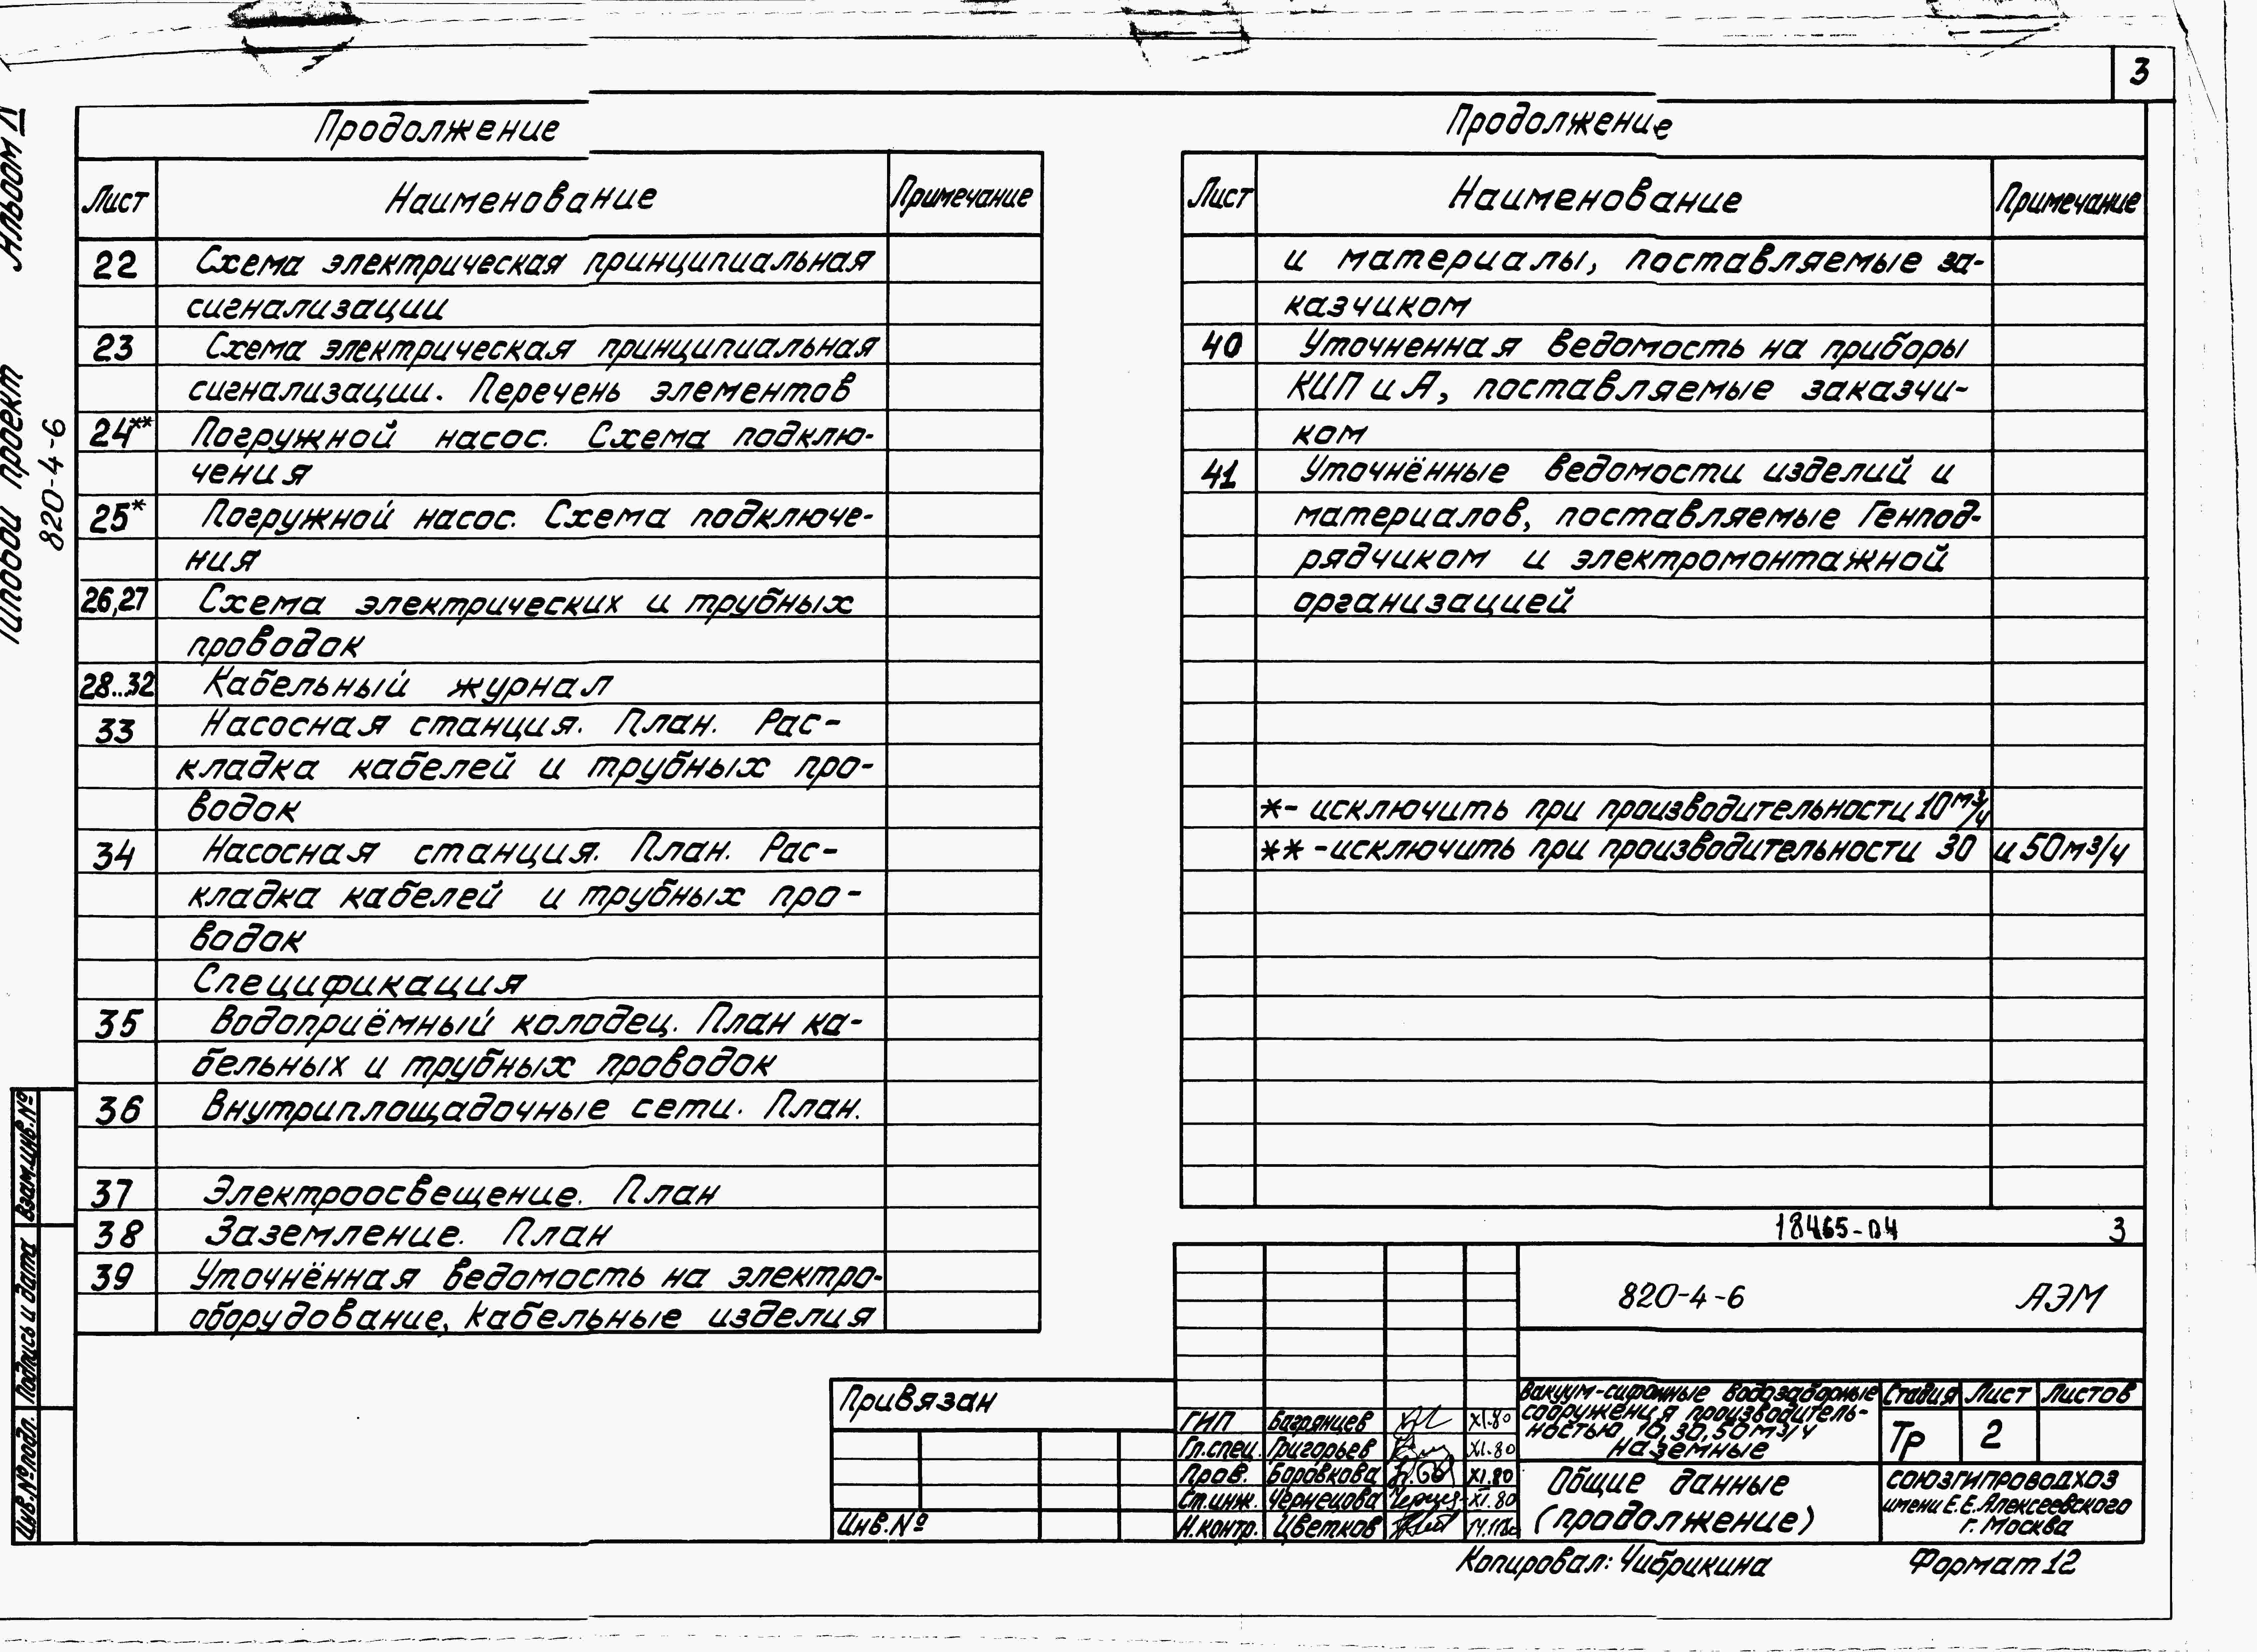 3
Альбом IV
Типовой проект
820-4-6
Продолжение
Лист Наименование Примечание
22 Схема электрическая принципиальная
сигнализации
23 Схема электрическая принципиальная
сигнализации. Перечень элементов
24** Погружной насос. Схема подклю-
чения
25* Погружной насос. Схема подключе-
ния
26,27 Схема электрических и трубных
проводок
28..32 Кабельный журнал
33 Насосная станция. План. Рас-
кладка кабелей и трубных про-
водок
34 Насосная станция. План. Рас-
кладка кабелей и трубных про-
водок
Спецификация
35 Водоприёмный колодец. План ка-
бельных и трубных проводок
36 Внутриплощадочные сети. План.
37 Электроосвещение. План
38 Заземление. План
39 Уточнённая ведомость на электро-
оборудование, кабельные изделия
Продолжение
Лист Наименование Примечание
и материалы, поставляемые за-
казчиком
40 Уточненная ведомость на приборы
КИП и А, поставляемые заказчи-
ком
41 Уточнённые ведомости изделий и
материалов, поставляемые Генпод-
рядчиком и электромонтажной
организацией
*- исключить при производительности 10 м³/ч
** -исключить при производительности 30 и 50 м³/ч
18465-04 3
820-4-6 АЭМ
Привязан
Инв.№
ГИП Багрянцев XI.80
Гл.спец. Григорьев XI.80
Пров. Боровкова XI.80
Ст.инж. Чернецова XI.80
Н.контр. Цветков
Вакуум-сифонные водозаборные
сооружения производитель-
ностью 10,30,50 м³/ч
наземные
Стадия Лист Листов
Тр 2
Общие данные
(продолжение)
СОЮЗГИПРОВОДХОЗ
имени Е.Е.Алексеевского
г. Москва
Копировал: Чибрикина Формат 12
Взам.инв.№
Подпись и дата
Инв.№подл.